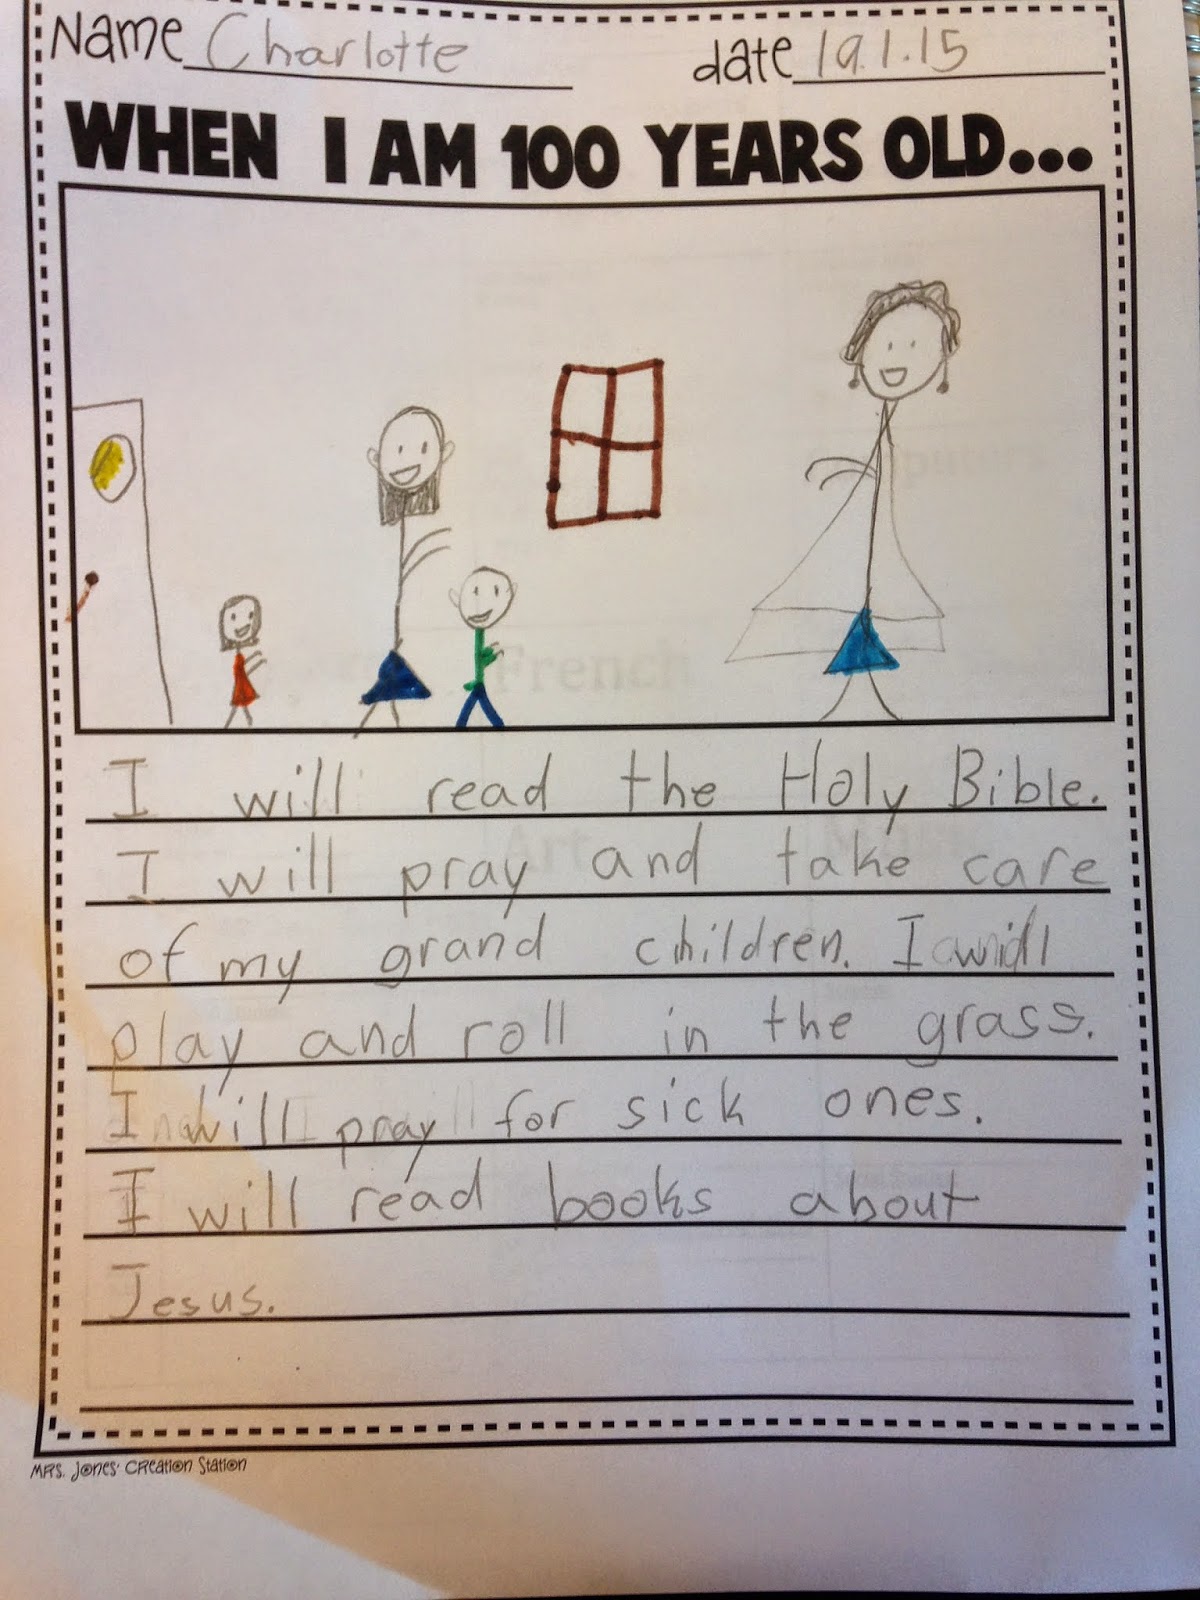 Name Charlotte date 19.1.15
WHEN I AM 100 YEARS OLD...
computers
French
Art
Music
I will read the Holy Bible.
I will pray and take care
of my grand children. I will
play and roll in the grass.
I will pray for sick ones.
I will read books about
Jesus.
MRS. JONES' CREATION STATION